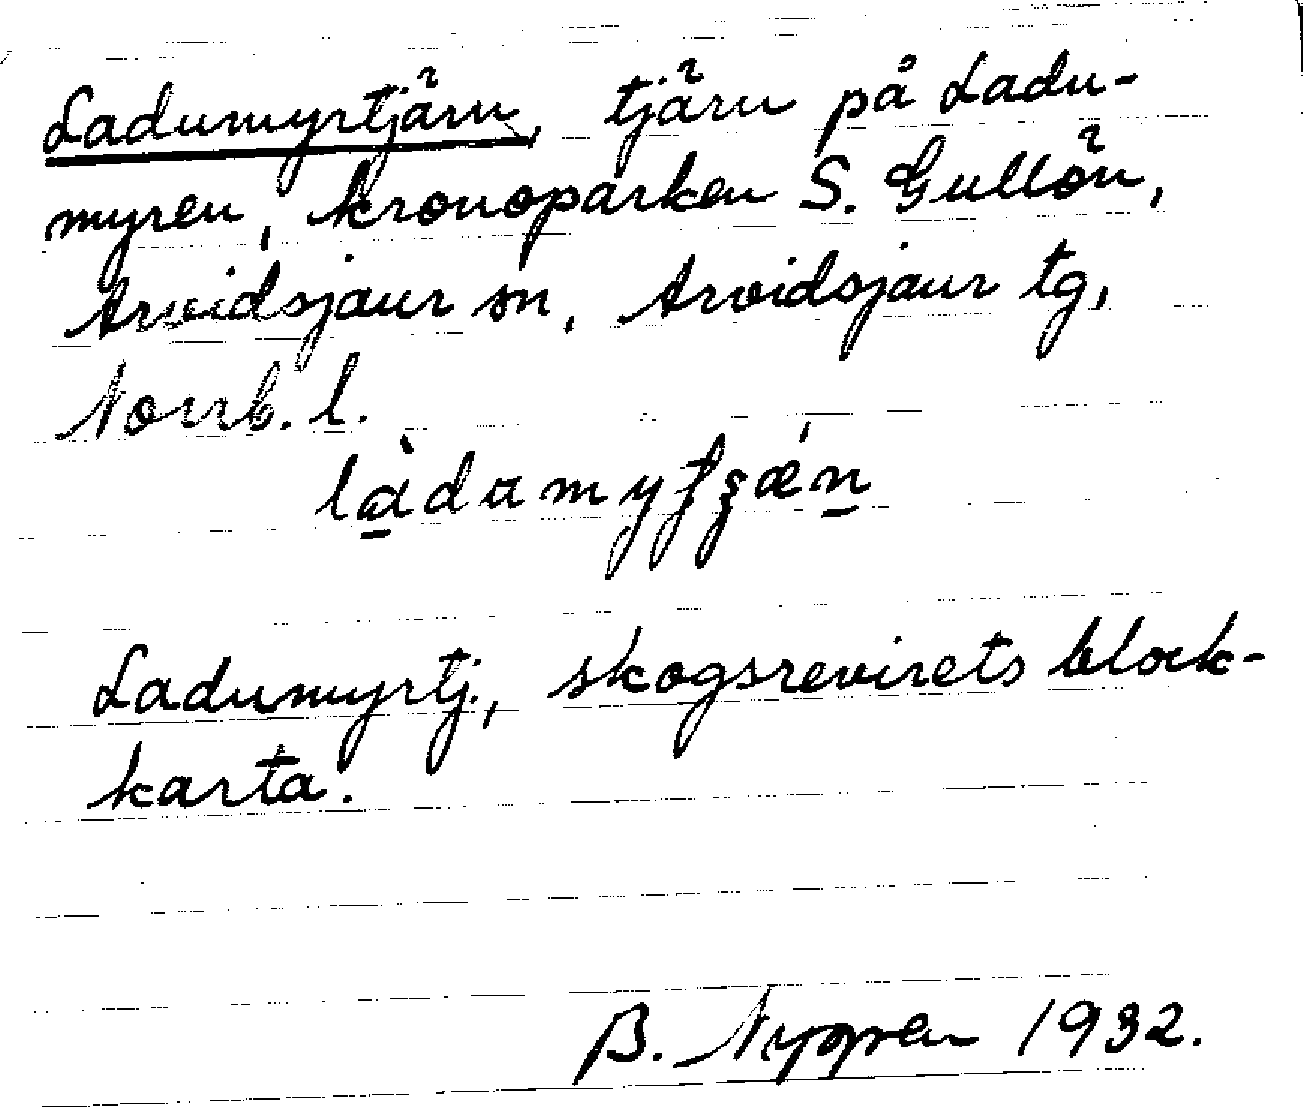 Ladumyrtjärn, tjärn på Ladu-
myren, kronoparken S. Gullön,
Arvidsjaur sn, Arvidsjaur tg,
Norrb. l.
Ladumyrtj., skogsrevirets block-
karta.
B. Nygren 1932.